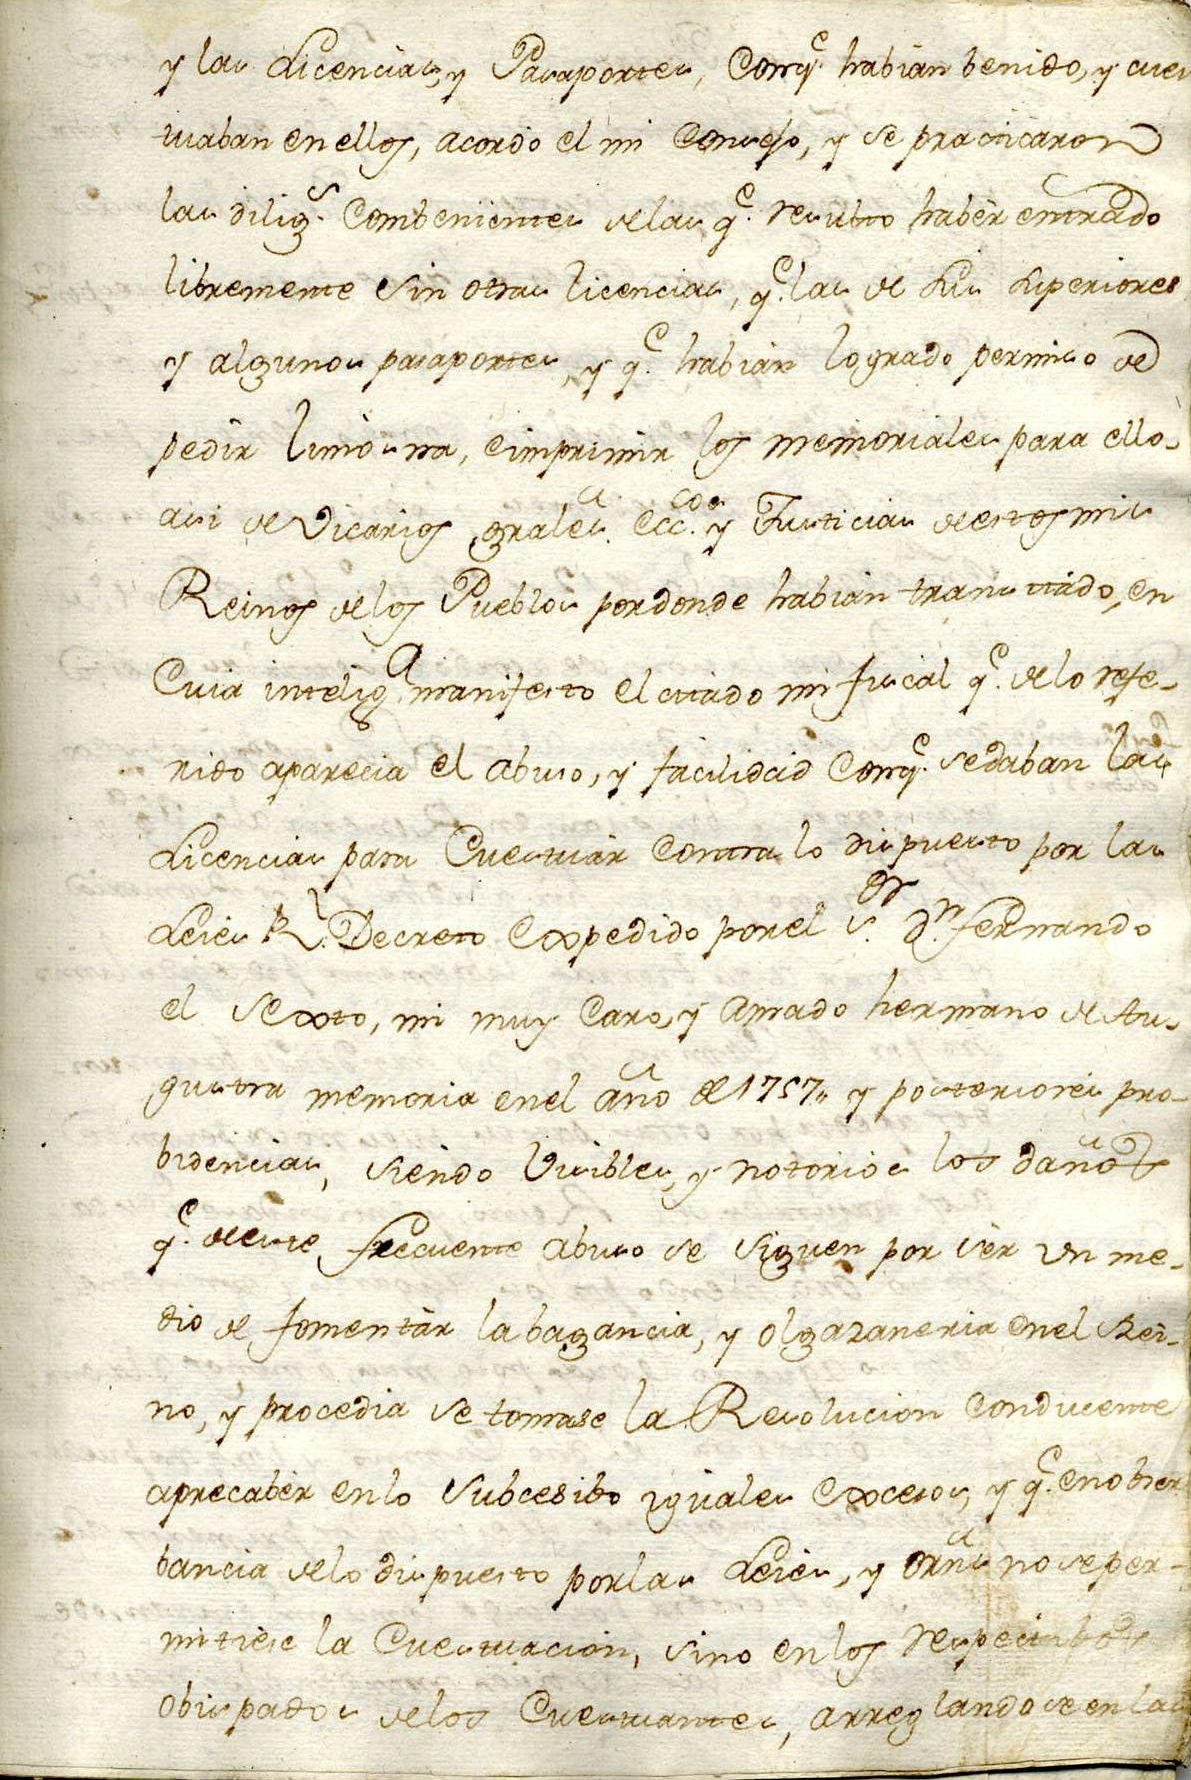 y las Licencias, y Pasaportes, Conq.e habian benido, y cues
tuaban en ellos, acordò el mi Consejo, y se practicaron
las dilig.s Combenientes de las q.e resultò habèr entrado
libremente sin otras licencias, q.e las de sus superiores
y algunos pasaportes, y q.e habian logrado permiso de
pedir limosna, e imprimir los memoriales para ello
asi de Vicarios grales. Ecc.cos y Justicias de estos mis
Reinos de los Pueblos por donde habian transitado, en
Cuia intelig.a manifesto el citado mi fiscal q.e de lo refe-
rido aparecia el abuso, y facilidad Conq.e se daban las
Licencias para Cuestuàr Contra lo dispuesto por las
Leies Rl. Decreto Expedido por el s.or d.n fernando
el Sexto, mi muy Caro, y Amado hermano de Au-
gusta memoria en el año de 1757,, y posteriores pro-
bidencias, siendo Visibles, y notorios los daños
q.e de este frecuente abuso se siguen por sèr un me-
dio de fomentàr la bagancia, y olgazaneria en el Rei-
no, y procedia se tomase la Resolucion Conducente
a precabèr en lo subcesibo iguales Excesos, y q.e en obser
bancia de lo dispuesto por las Leies, y orñs no se per-
mitiese la Cuestuacion, sino en los respectibos
obispados de los Cuestuantes, arreglandose en las